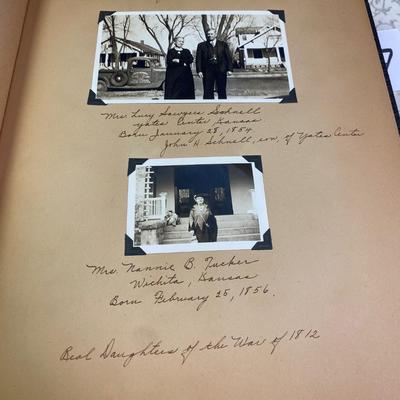 Mrs. Lucy Sawyers Schnell
Yates Center Kansas
Born January 28, 1854
John H Schnell, son, of Yates Center
Mrs. Nannie B. Tucker
Wichita, Kansas
Born February 25, 1856.
Real Daughters of the War of 1812